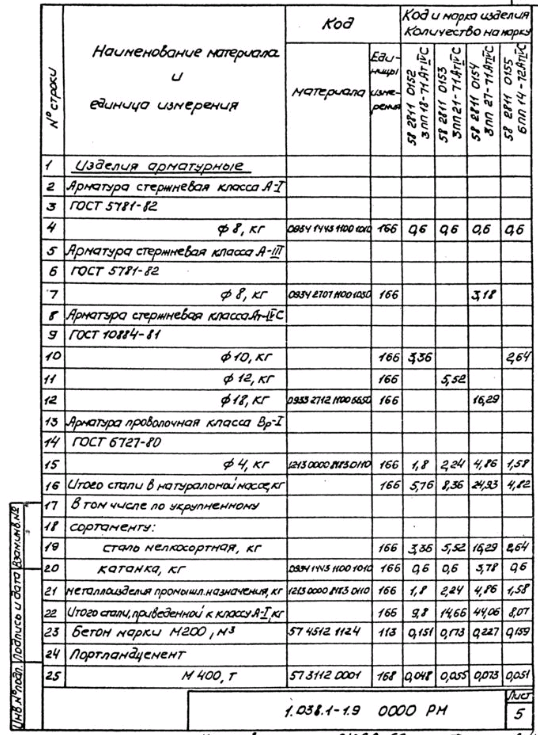 № строки
Наименование материала
и
единица измерения
Код
материала
Еди-
ницы
изме-
рения
Код и марка изделия
Количество на марку
58 2811 0152
3ПП 18-71 АтIVС
58 2811 0153
3ПП 21-71 АтIVС
58 2811 0154
3ПП 27-71 АтIVС
58 2811 0155
6ПП 14-72 АтIVС
1 Изделия арматурные
2 Арматура стержневая класса А-I
3 ГОСТ 5781-82
4 ф 8, кг 0934 1443 1100 1010 166 0,6 0,6 0,6 0,6
5 Арматура стержневая класса А-III
6 ГОСТ 5781-82
7 ф 8, кг 0934 2707 1100 1030 166 3,18
8 Арматура стержневая класса Ат-IVС
9 ГОСТ 10884-81
10 ф 10, кг 166 3,36 2,64
11 ф 12, кг 166 5,52
12 ф 18, кг 0933 2712 1100 166 16,29
13 Арматура проволочная класса Вр-I
14 ГОСТ 6727-80
15 ф 4, кг 1213 0000 8183 0110 166 1,8 2,24 4,86 1,58
16 Итого стали в натуральной массе, кг 166 5,76 8,36 24,93 4,82
17 В том числе по укрупненному
18 сортаменту:
19 сталь мелкосортная, кг 166 3,36 5,52 16,29 2,64
20 катанка, кг 0934 1443 1100 1010 166 0,6 0,6 3,78 0,6
21 металлоизделия промышл. назначения, кг 1213 0000 8183 0110 166 1,8 2,24 4,86 1,58
22 Итого стали, приведенной к классу А-I, кг 166 9,8 14,66 44,06 8,07
23 Бетон марки М200, м³ 57 4512 1124 113 0,151 0,173 0,227 0,159
24 Портландцемент
25 М 400, т 57 3112 0001 168 0,048 0,055 0,073 0,051
1.038.1-1.9 0000 РМ
Лист
5
Инв.№подл. Подпись и дата Взам.инв.№